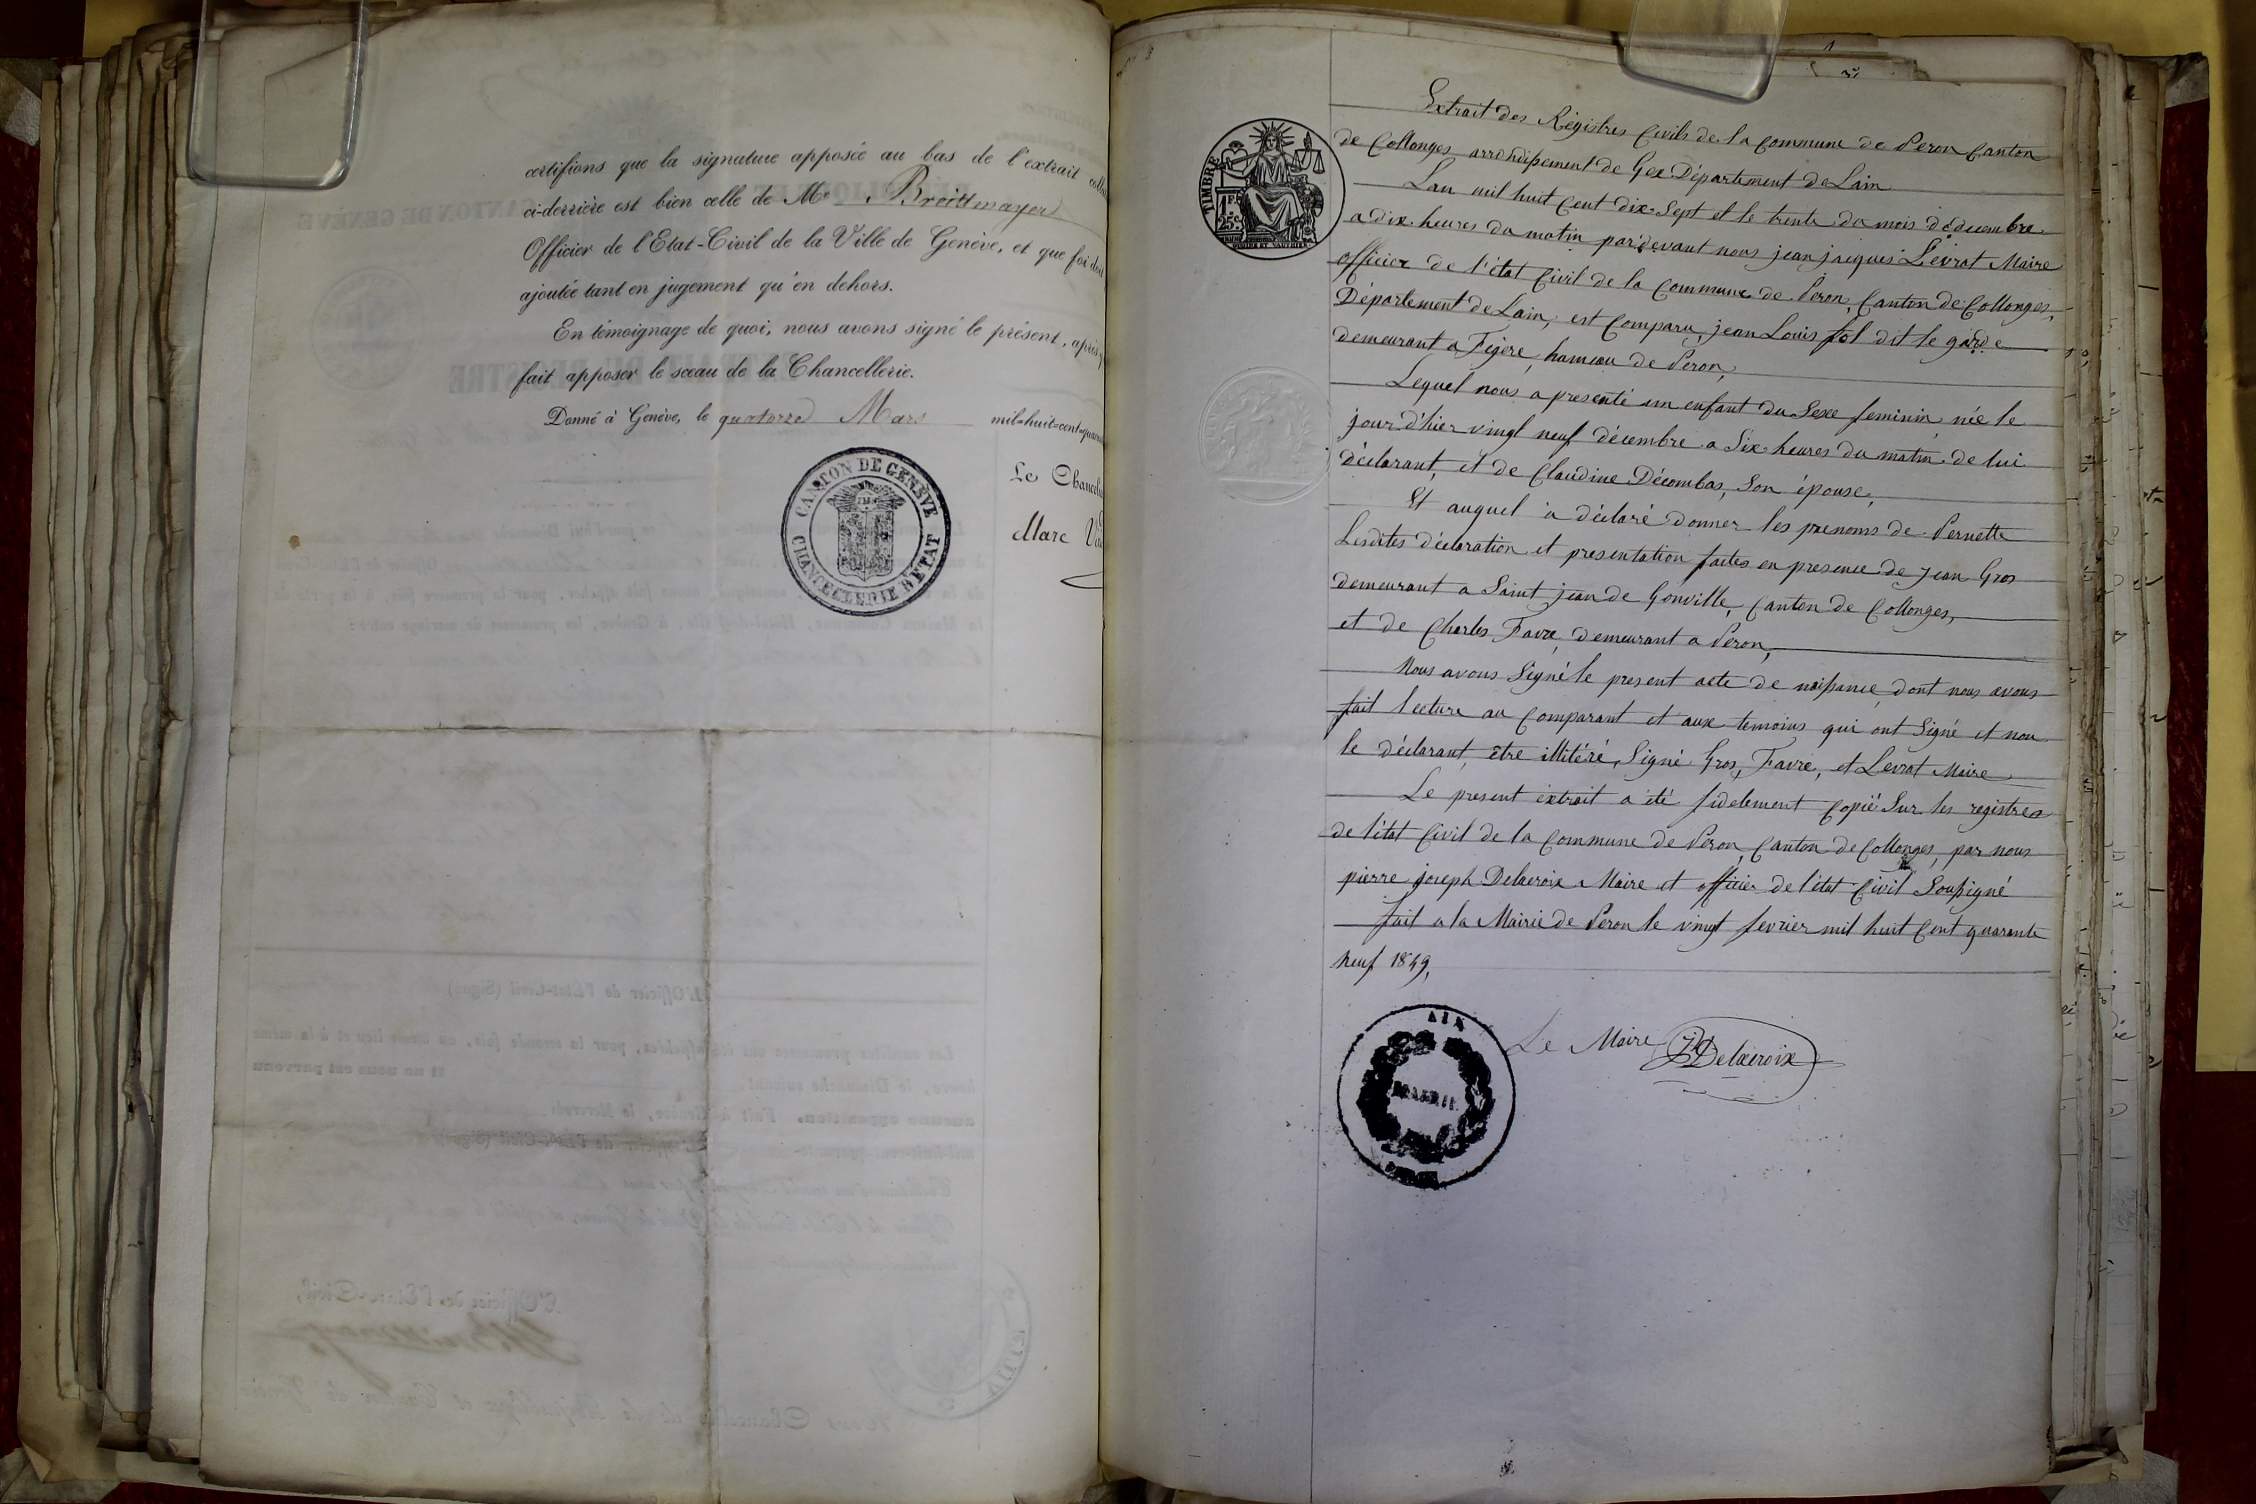 certifions que la signature apposée au bas de l'extrait
ci-derrière est bien celle de Mr Breittmayer
Officier de l'Etat-Civil de la Ville de Genève, et que foi doit
ajoutée tant en jugement qu'en dehors.
En témoignage de quoi, nous avons signé le présent, après
fait apposer le sceau de la Chancellerie.
Donné à Genève, le quatorze Mars mil-huit-cent-quaran
Le Chancelier
Marc
CANTON DE GENÈVE
CHANCELLERIE D'ÉTAT
TIMBRE
1F.
25c.
Extrait des Régistres Civils de la Commune de Peron Canton
de Collonges arrondissement de Gex Département de Lain
Lan mil huit Cent dix-Sept et le trente du mois de decembre
a dix heures du matin par devant nous jean jacques Levrat Maire
officier de l'état Civil de la Commune de Peron, Canton de Collonges,
Département de Lain, est Comparu, jean Louis fol dit le garde
demeurant a Feigère, hameau de Peron,
Lequel nous a presenté un enfant du Sexe feminin, née le
jour d'hier vingt neuf décembre a Six heures du matin de lui
déclarant, et de Claudine Décombas, Son épouse,
Et auquel a déclaré donner les prenoms de Pernette
Lesdites déclaration et presentation faites en presence de jean Gros
demeurant a Saint jean de Gonville, Canton de Collonges,
et de Charles Favre, demeurant a Peron,
Nous avons Signé le present acte de naissance, dont nous avons
fait lecture au Comparant et aux temoins qui ont Signé et non
le déclarant, être illitéré, Signé Gros, Favre, et Levrat Maire
Le present extrait a été fidelement Copié Sur les registres
de l'état Civil de la Commune de Peron, Canton de Collonges, par nous
pierre joseph Delacroix Maire et officier de l'état Civil Soussigné
fait a la Mairie de Peron le vingt fevrier mil huit Cent quarante
neuf 1849,
Le Maire PJ Delacroix
AIN
MAIRIE